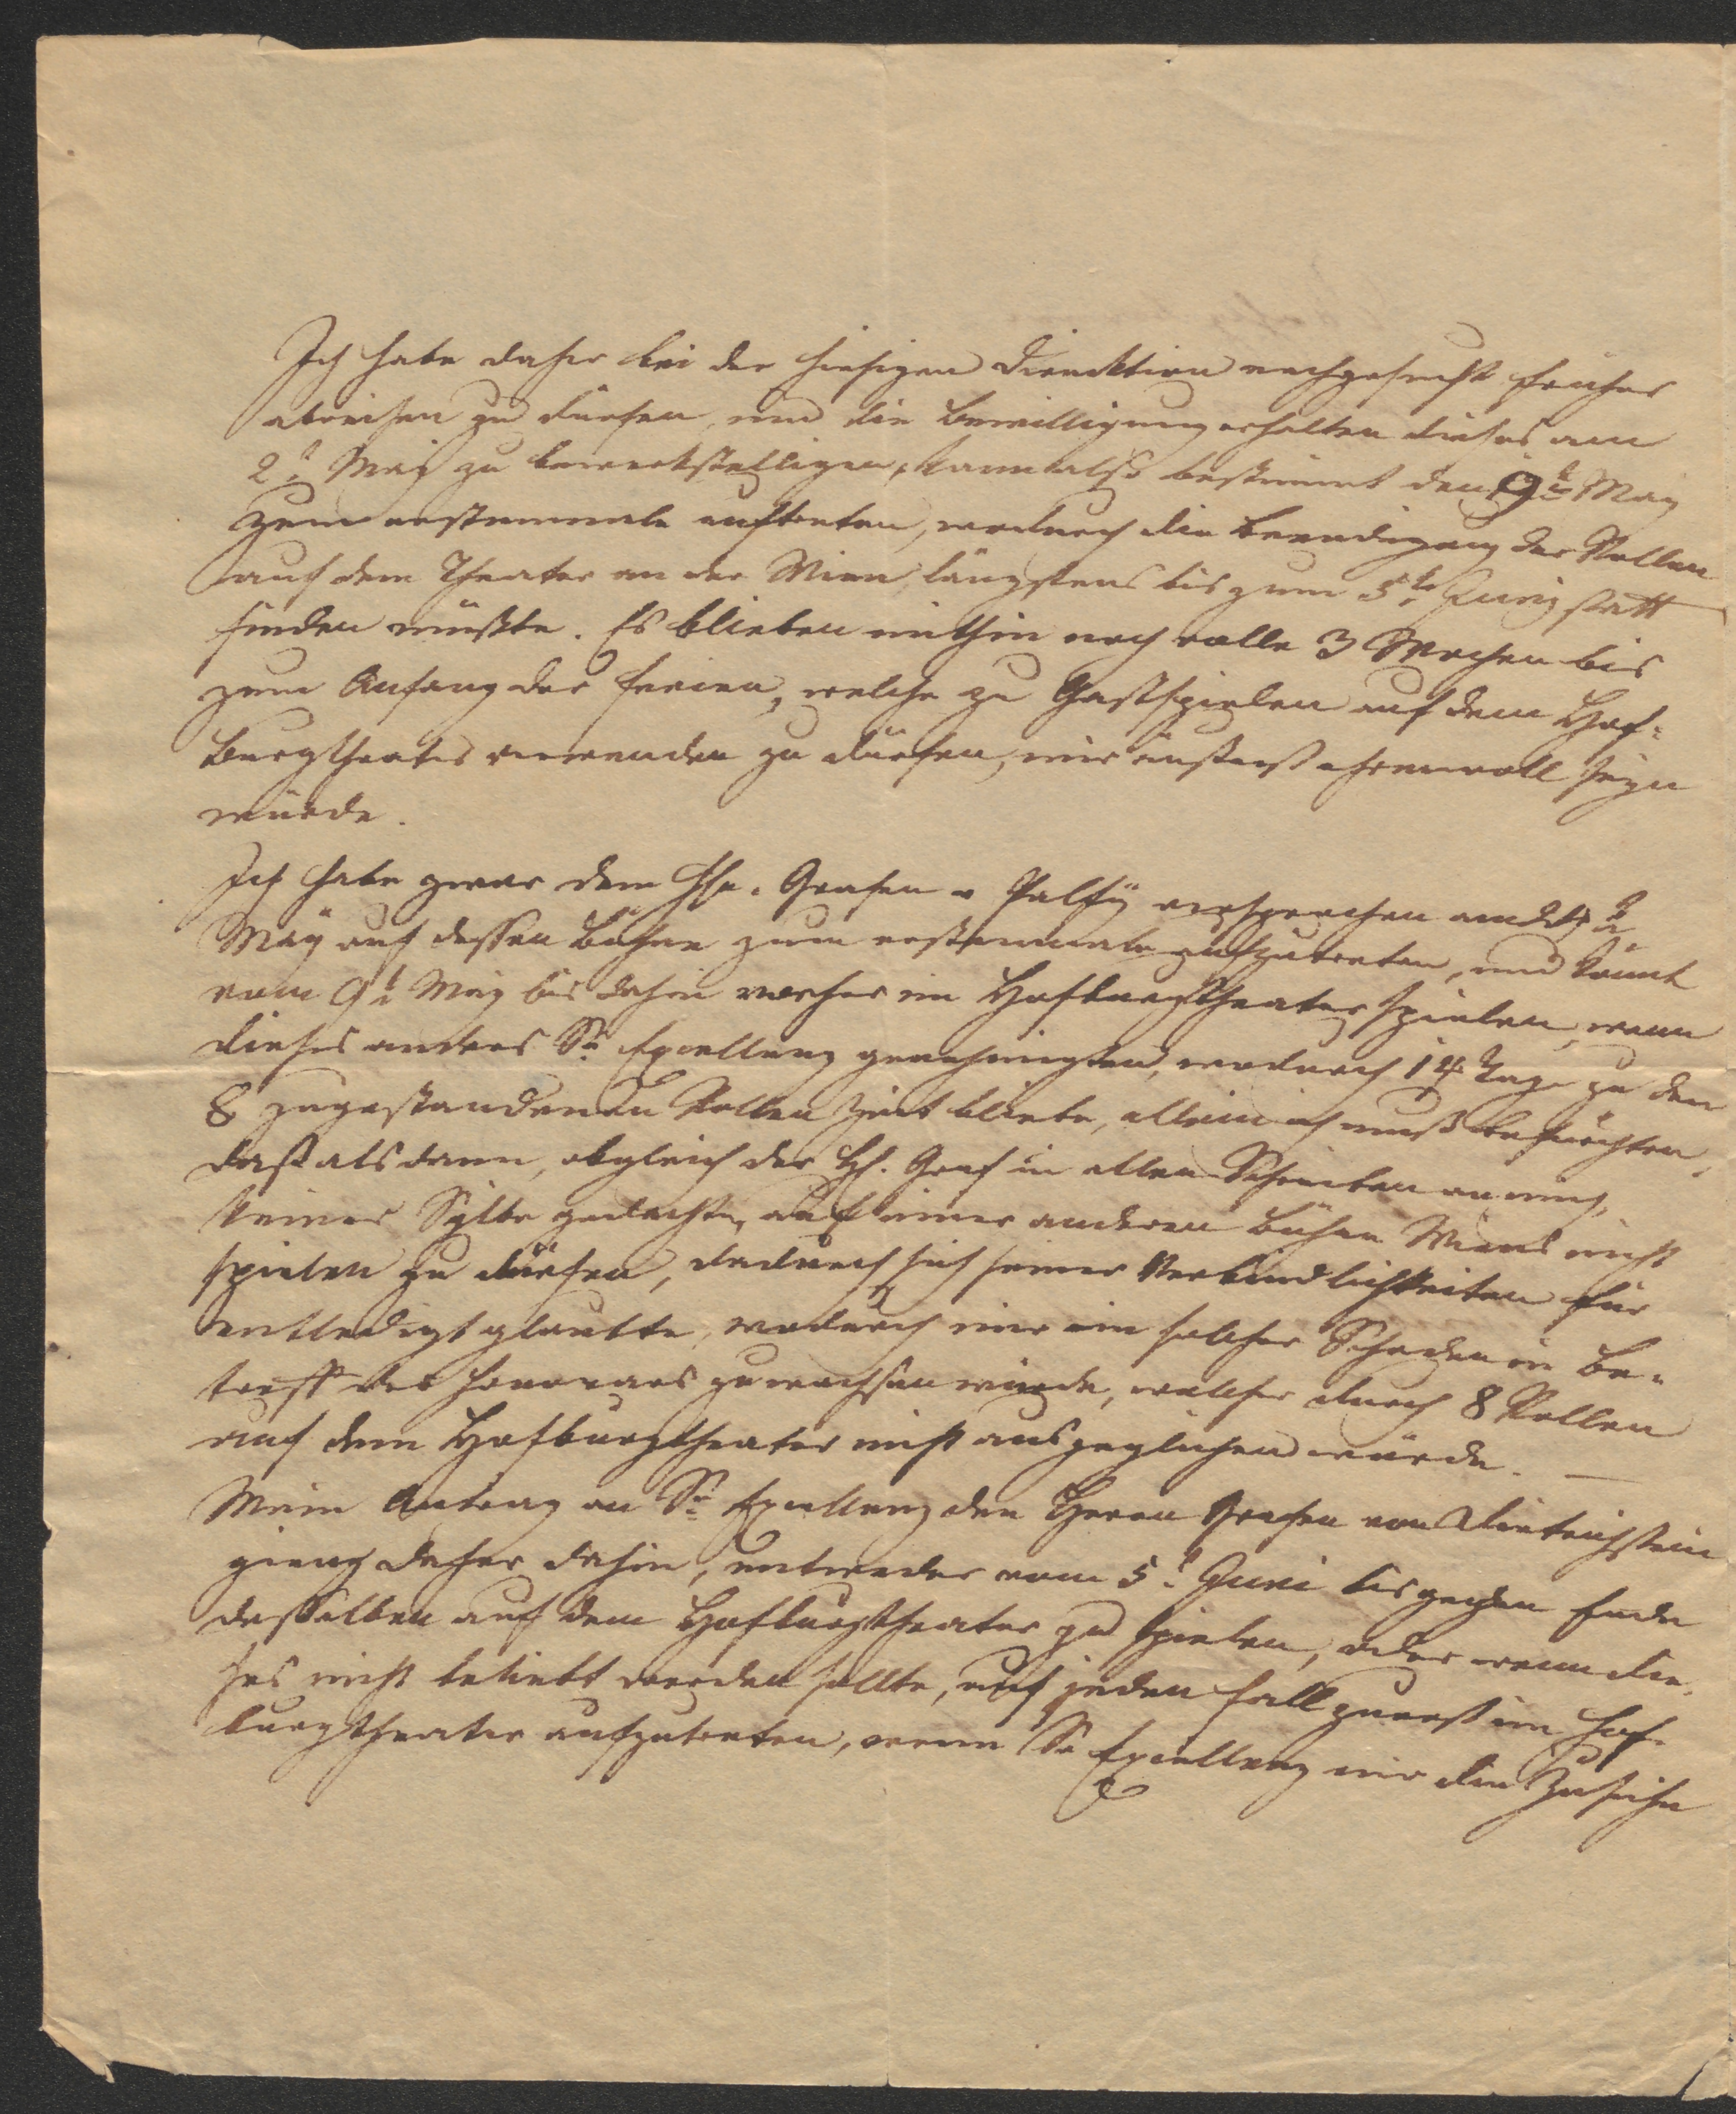 Ich habe daher bei der hiesigen Direcktion nachgesucht früher
abreisen zu dürfen, und die Bewilligung erhalten dieses am
2t May zu bewerkstelligen, kann also bestimmt den 9t May
zum erstenmale auftreten, wodurch die Beendigung der Rollen
auf dem Theater an der Wien, längstens bis zum 5t Juny statt
finden müßte. Es blieben mithin noch volle 3 Wochen bis
zum Anfang der Ferien, welche zu Gastspielen auf dem Hof-
burgtheater verwenden zu dürfen, mir äußerst ehrenvoll seyn
würde.
Ich habe zwar dem Hr. Grafen v Palfÿ versprochen am
Maÿ auf dessen Bühne zum erstenmale aufzutreten, und könnt
vom 9t May bis dahin vorher im Hofburgtheater spielen, wenn
dieses anders Sr Excellenz genehmigten, wodurch 14 Tage zu den
8 zugestandenen Rollen Zeit bliebe, allein ich muß befürchten,
daß alsdann, obgleich der H. Graf in allen Schreiben an mich,
keiner Sylbe gedachte, auf einer anderen Bühne Wiens nicht
spielen zu dürfen, dadurch sich seiner Verbindlichkeiten für
entledigt glaubte, wodurch mir ein solcher Schaden in Be-
treff des Honorars zuwachsen würde, welcher durch 8 Rollen
auf dem Hofburgtheater nicht ausgeglichen würde. —
Mein Antrag an Sr Excellenz den Herrn Grafen von Dietrichstein
gieng daher dahin, entweder vom 5t Juni bis gegen Ende
desselben auf dem Hofburgtheater zu spielen, oder wenn die-
ses nicht beliebt werden sollte, auf jeden Fall zuerst im Hof-
burgtheater aufzutreten, wenn Sr Excellenz mir die Zusiche